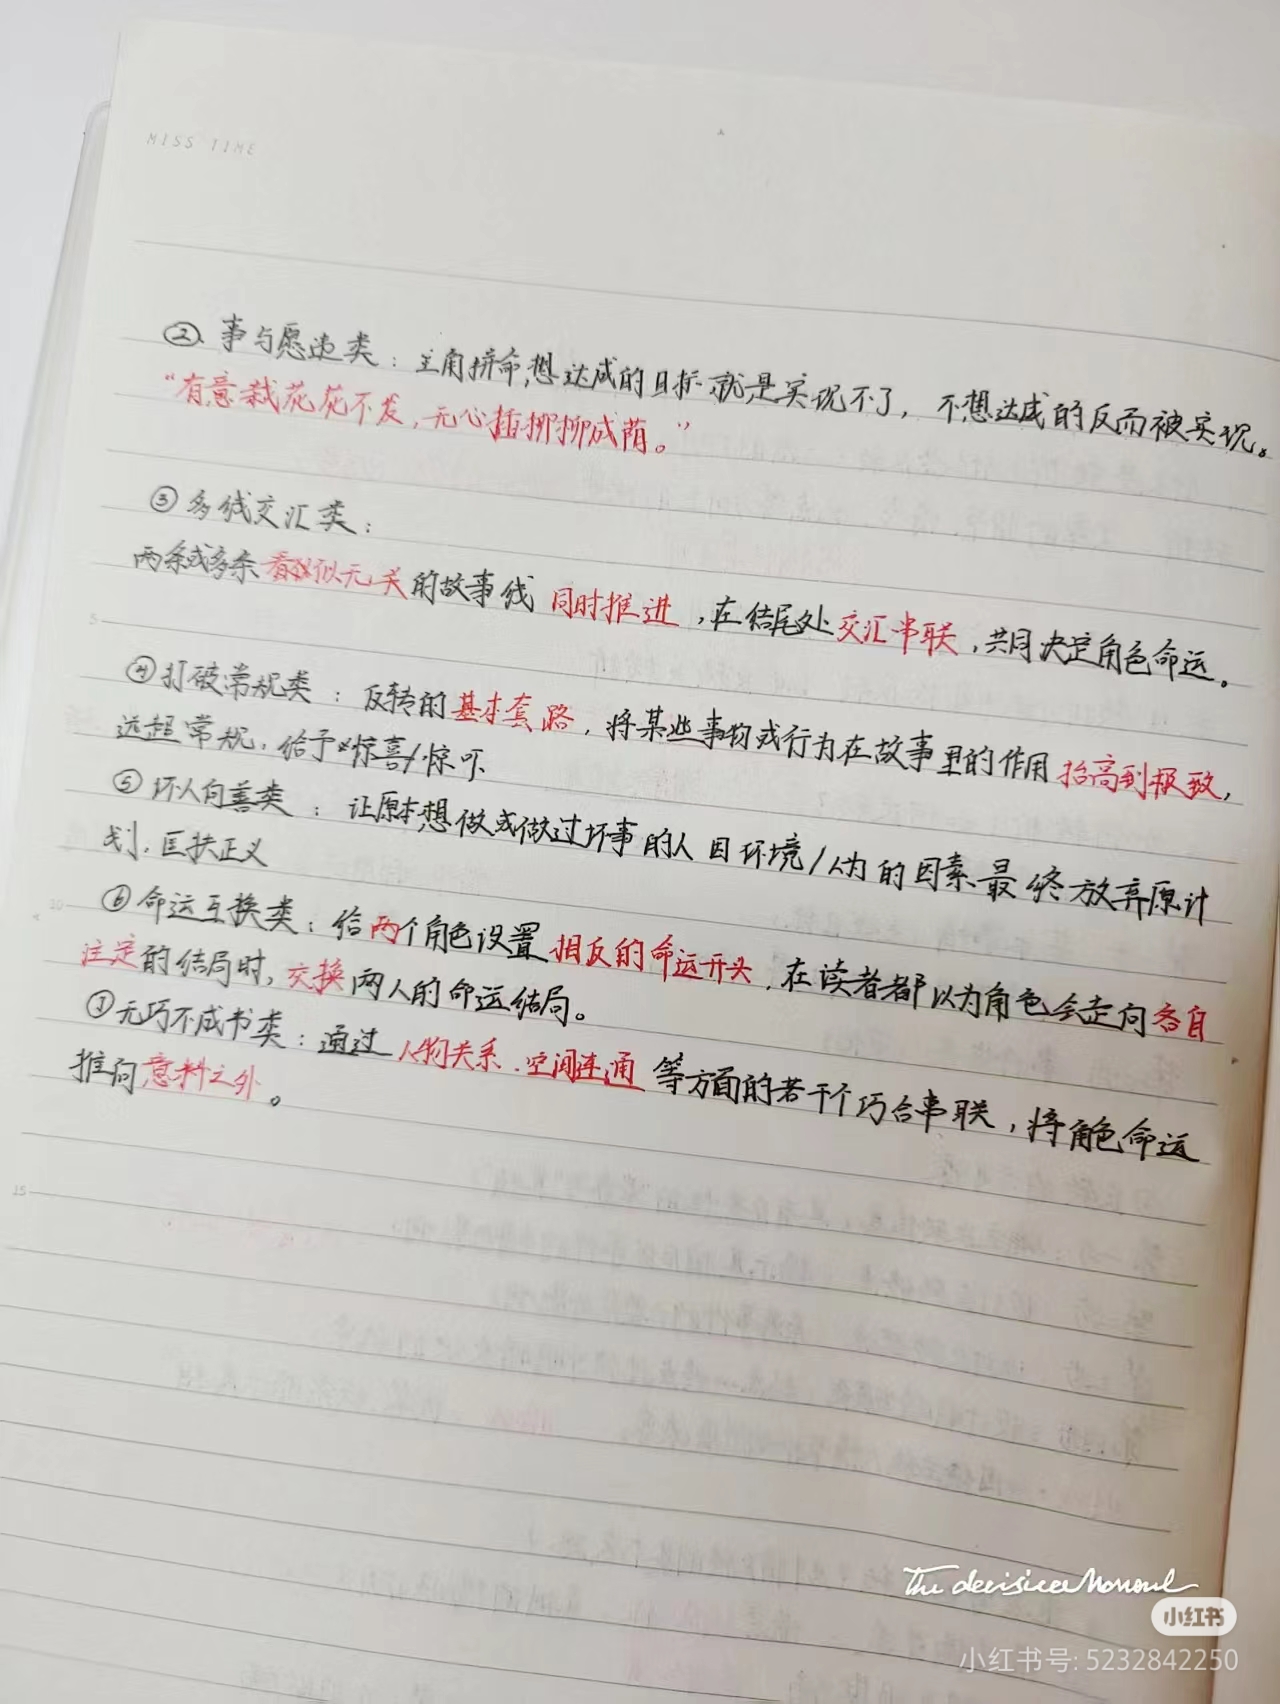 MISS TIME
②、事与愿违类：主角拼命想达成的目标就是实现不了，不想达成的反而被实现。
“有意栽花花不发，无心插柳柳成荫。”
③多线交汇类：
两条或多条看似无关的故事线 同时推进，在结尾处交汇串联，共同决定角色命运。
④打破常规类：反转的基本套路，将某些事物或行为在故事里的作用抬高到极致，
远超常规，给予惊喜/惊吓
⑤坏人向善类：让原本想做或做过坏事的人因环境/人为的因素最终放弃原计
划，匡扶正义
⑥命运互换类：给两个角色设置相反的命运开头，在读者都以为角色会走向各自
注定的结局时，交换两人的命运结局。
⑦无巧不成书类：通过人物关系、空间连通等方面的若干个巧合串联，将角色命运
推向意料之外。
5
10
15
The
小红书
小红书号: 5232842250